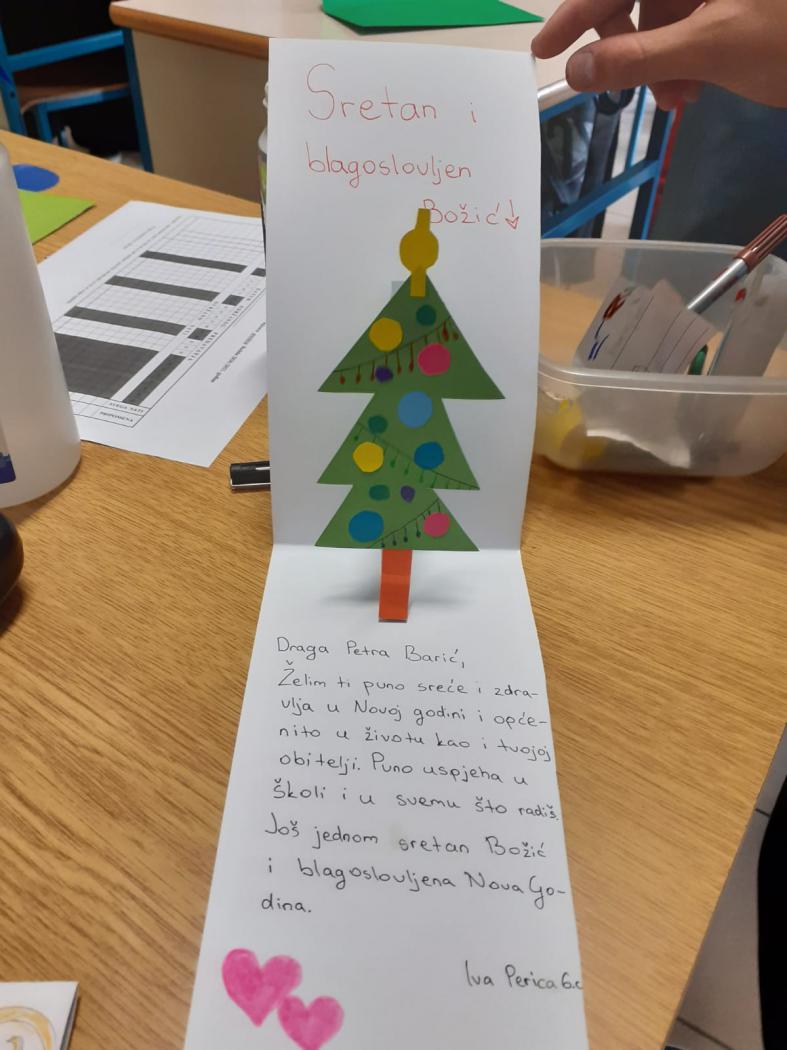 Sretan i
blagoslovljen
Božić ↓
Draga Petra Barić,
Želim ti puno sreće i zdra-
vlja u Novoj godini i opće-
nito u životu kao i tvojoj
obitelji. Puno uspjeha u
školi i u svemu što radiš.
Još jednom sretan Božić
i blagoslovljena Nova Go-
dina.
Iva Perica 6.c